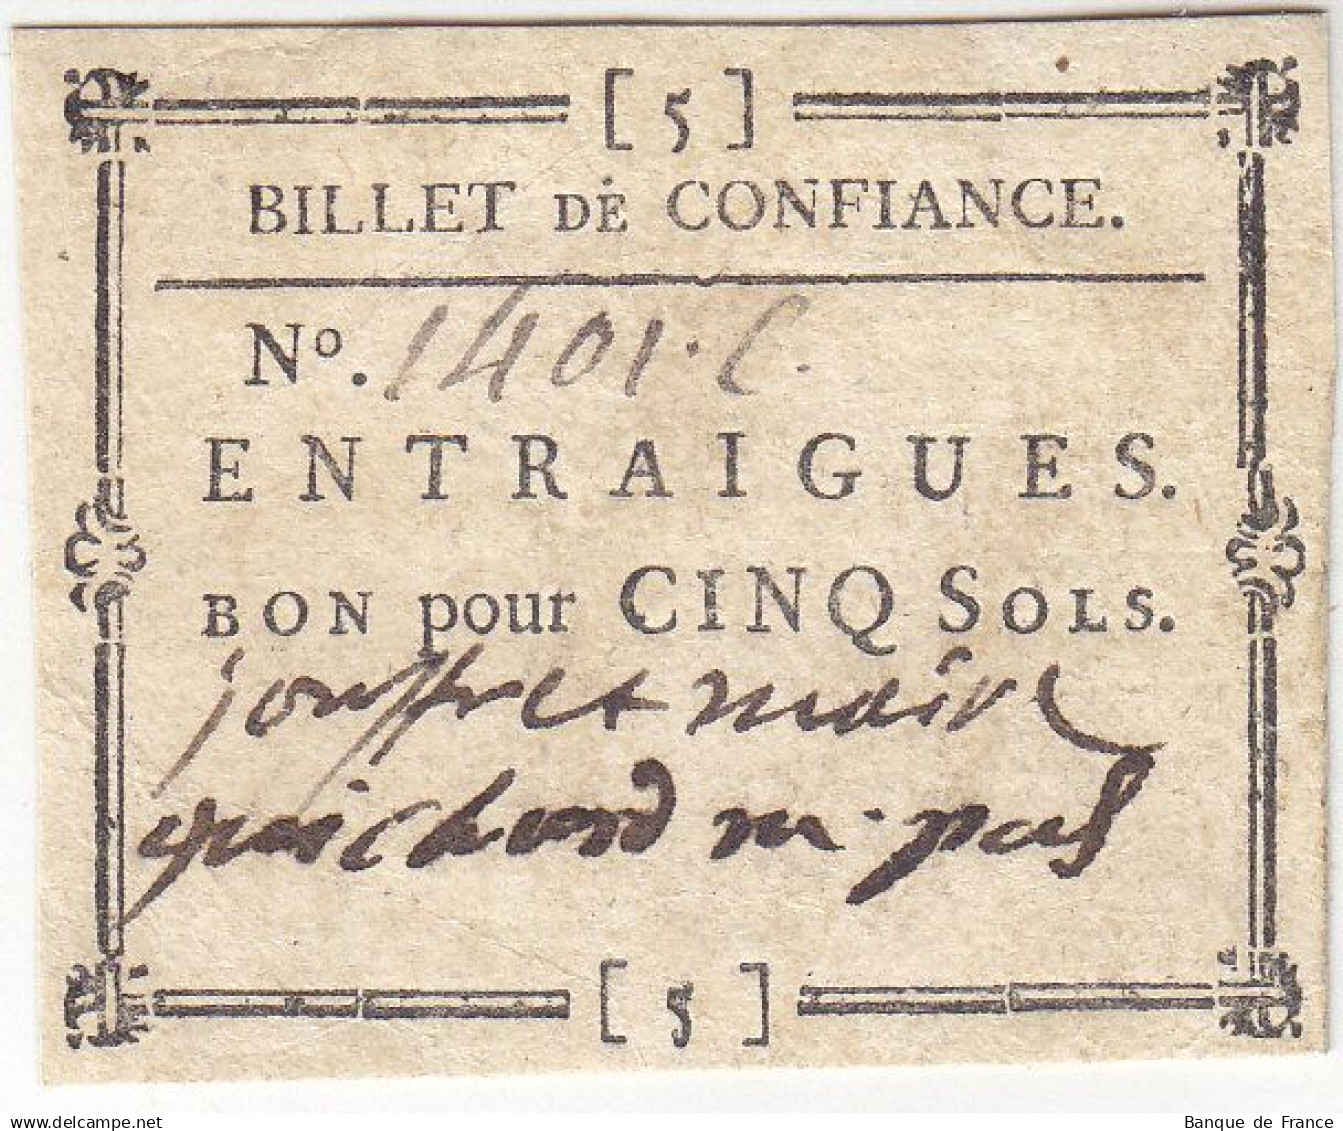 [ 5 ]
BILLET DE CONFIANCE.
No. 1401. C.
ENTRAIGUES.
BON pour CINQ SOLS.
jouffret maire
guichard m. pal
[ 5 ]
www.delcampe.net
Banque de France